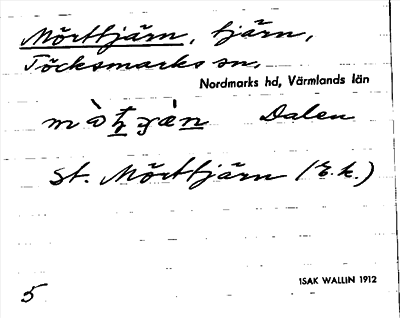 Mörttjärn, tjärn,
Töcksmarks sn.
Nordmarks hd, Värmlands län
Dalen
St. Mörttjärn (E.k.)
5
ISAK WALLIN 1912